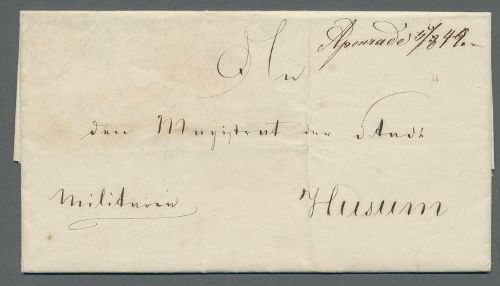 Apenrade 3/8 49.
An
den Magistrat der Stadt
Militaria
Husum